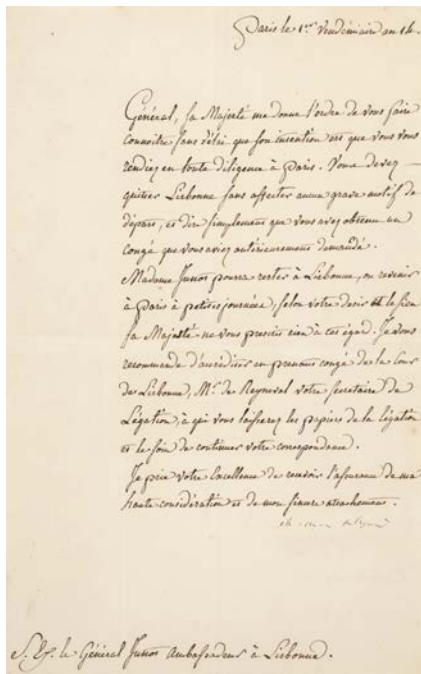 Paris le 1er Vendémiaire an 14.
Général, sa Majesté me donne l'ordre de vous faire
connoitre sans délai que son intention est que vous vous
rendiez en toute diligence à Paris. Vous devez
quitter Lisbonne sans affecter aucun grave motif de
départ, et dire simplement que vous avez obtenu un
congé que vous aviez antérieurement demandé.
Madame Junot pourra rester à Lisbonne, ou revenir
à Paris à petites journées, selon votre desir et le sien
sa Majesté ne vous prescrit rien à cet égard. Je vous
recommande d'accréditer en prenant congé de la Cour
de Lisbonne, Mr. de Reyneval votre secretaire de
Légation, à qui vous laisserez les papiers de la légation
et le soin de continuer votre correspondance.
Je prie votre Excellence de recevoir l'assurance de ma
haute considération et de mon sincere attachement.
S. Ex. le Général Junot Ambassadeur à Lisbonne.